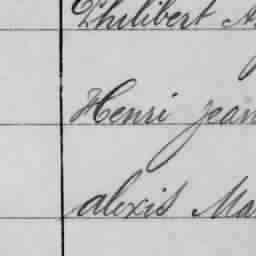 Philibert A
Henri Jean
Alexis Ma